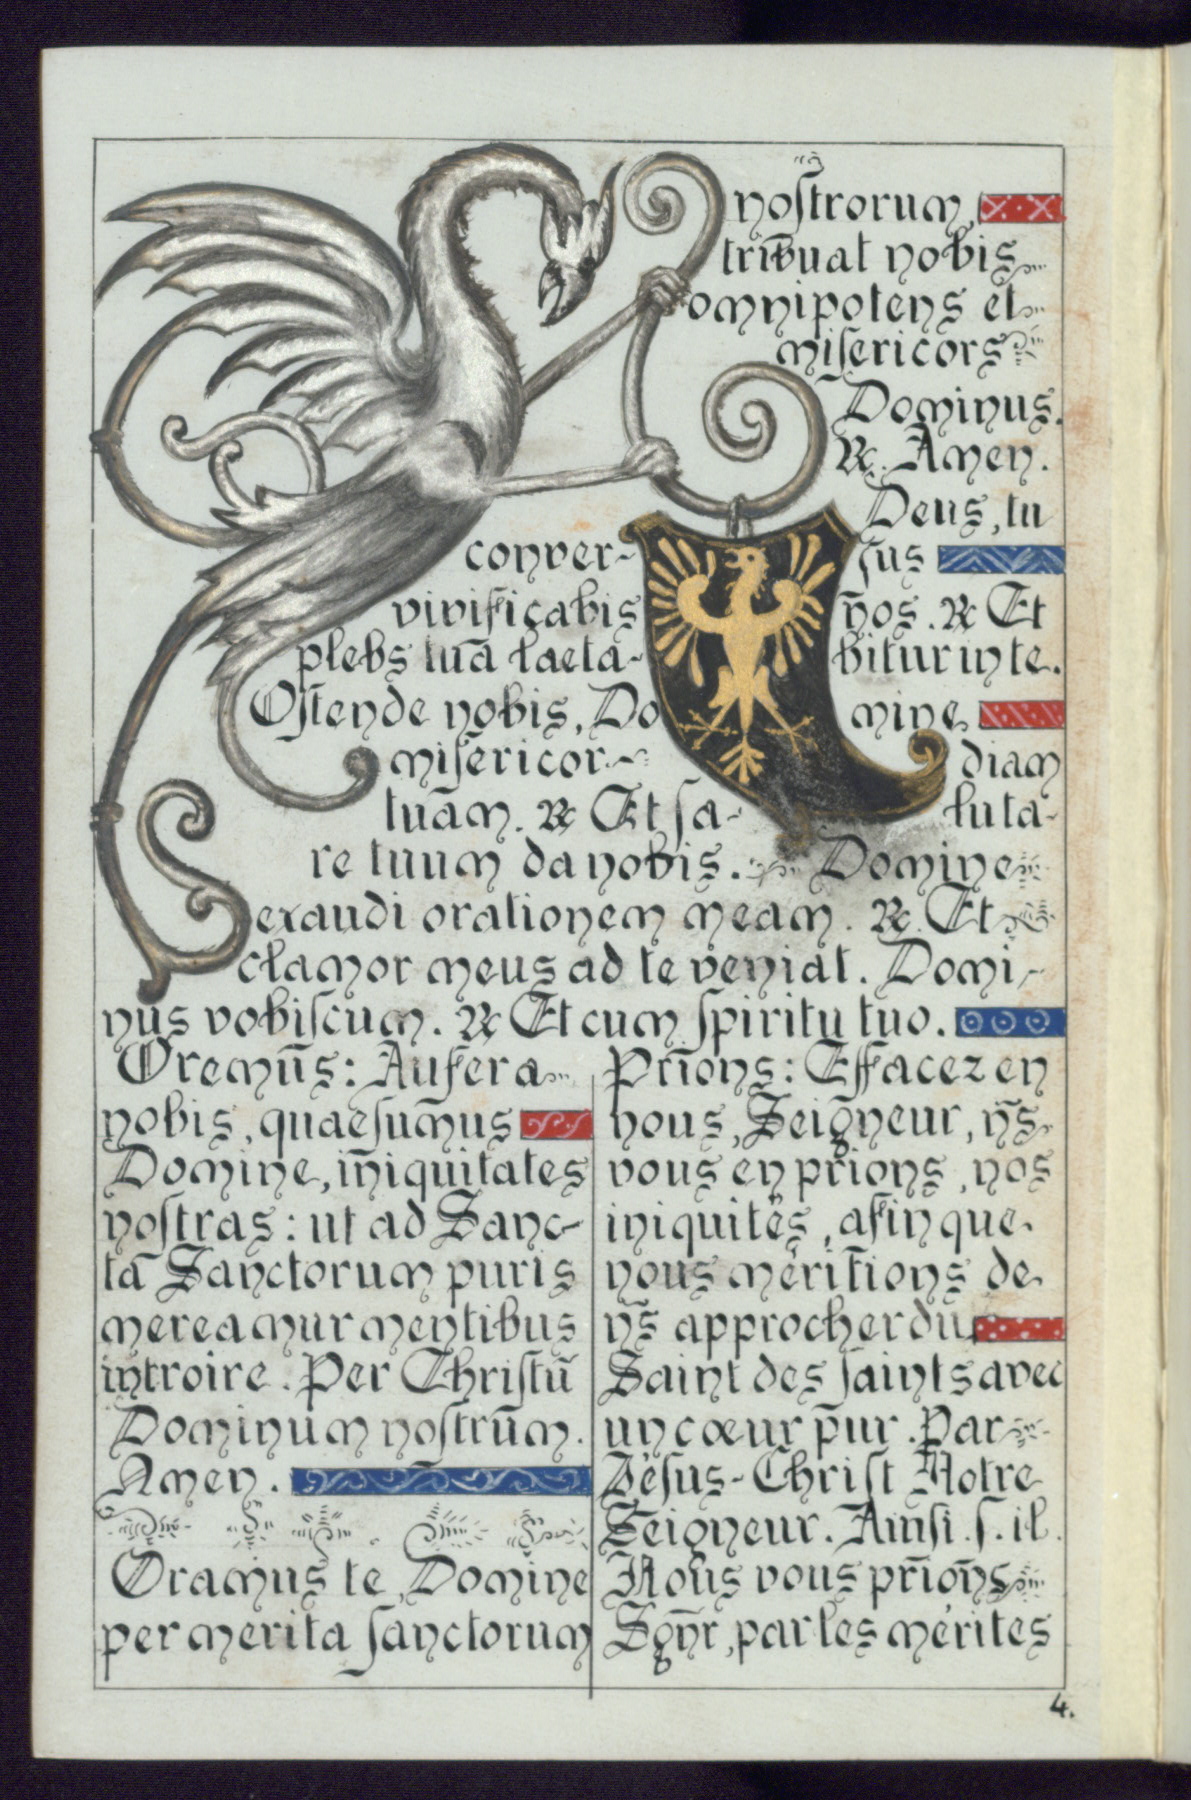 nostrorum,
tribuat nobis
omnipotens et
misericors
Dominus.
℟. Amen.
Deus, tu
conver- sus
vivificabis nos. ℟ Et
plebs tuā laeta- bitur in te.
Ostende nobis, Do mine
misericor- diam
tuam. ℟ Et sa- luta-
re tuum da nobis. Domine
exaudi orationem meam. ℟. Et
clamor meus ad te veniat. Domi-
nus vobiscum. ℟ Et cum spiritu tuo.
Oremus: Aufer a
nobis, quaesumus
Domine, iniquitates
nostras: ut ad Sanc-
ta Sanctorum puris
mereamur mentibus
introire. Per Christū
Dominum nostrum.
Amen.
Oramus te, Domine
per merita sanctorum
Prions: Effacez en
nous, Seigneur, n̄s
vous en prions, nos
iniquités, afin que
nous méritions de
n̄s approcher du
Saint des saints avec
un cœur pur. Par
Jésus-Christ Notre
Seigneur. Ainsi s. il.
Nous vous prions
Sgnr, par les mérites
4.